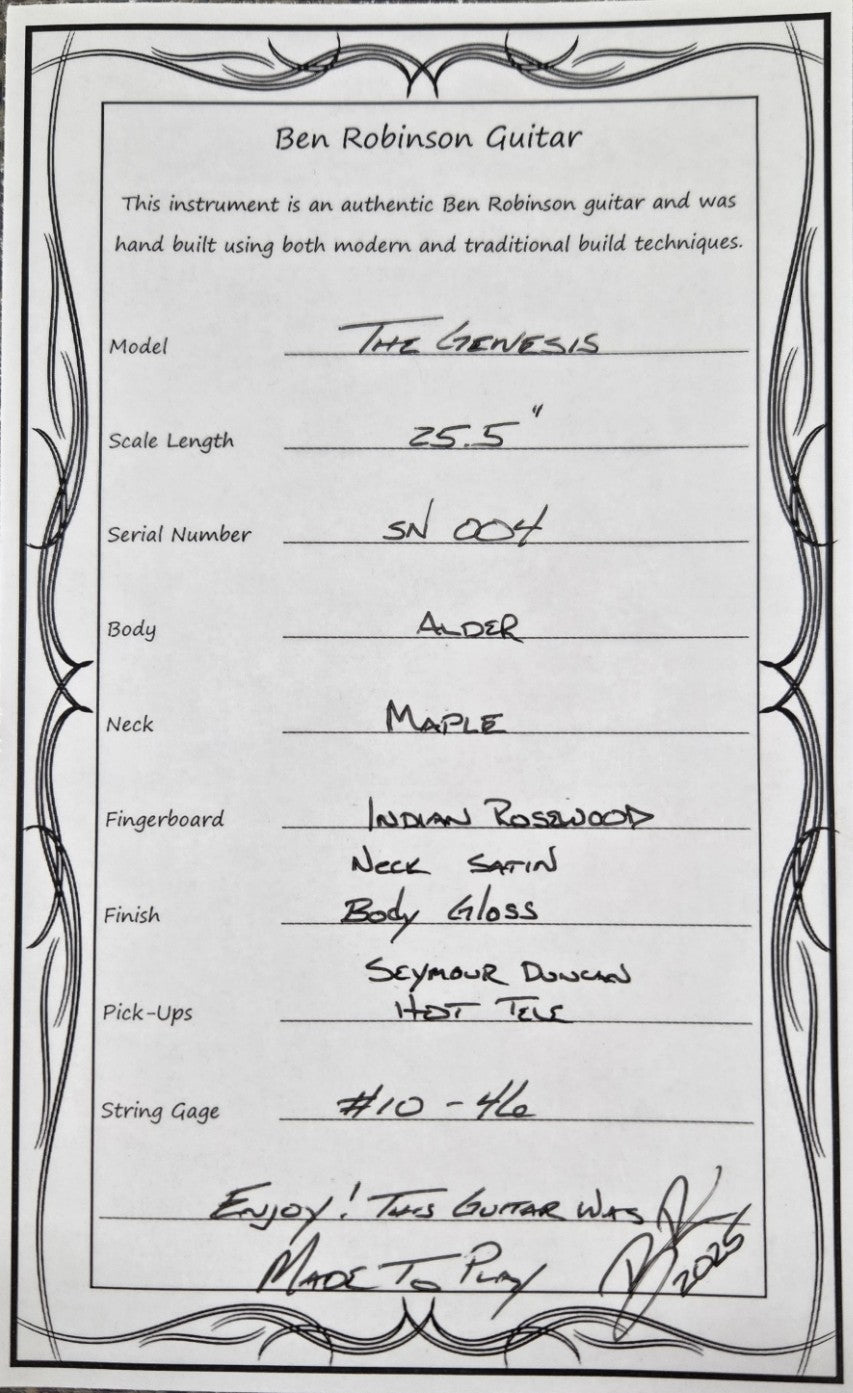 Ben Robinson Guitar
This instrument is an authentic Ben Robinson guitar and was
hand built using both modern and traditional build techniques.
Model THE GENESIS
Scale Length 25.5"
Serial Number SN 004
Body ALDER
Neck MAPLE
Fingerboard INDIAN ROSEWOOD
NECK SATIN
Finish Body Gloss
SEYMOUR DUNCAN
Pick-Ups HOT TELE
String Gage #10 - 46
ENJOY! THIS GUITAR WAS
MADE TO PLAY
2025